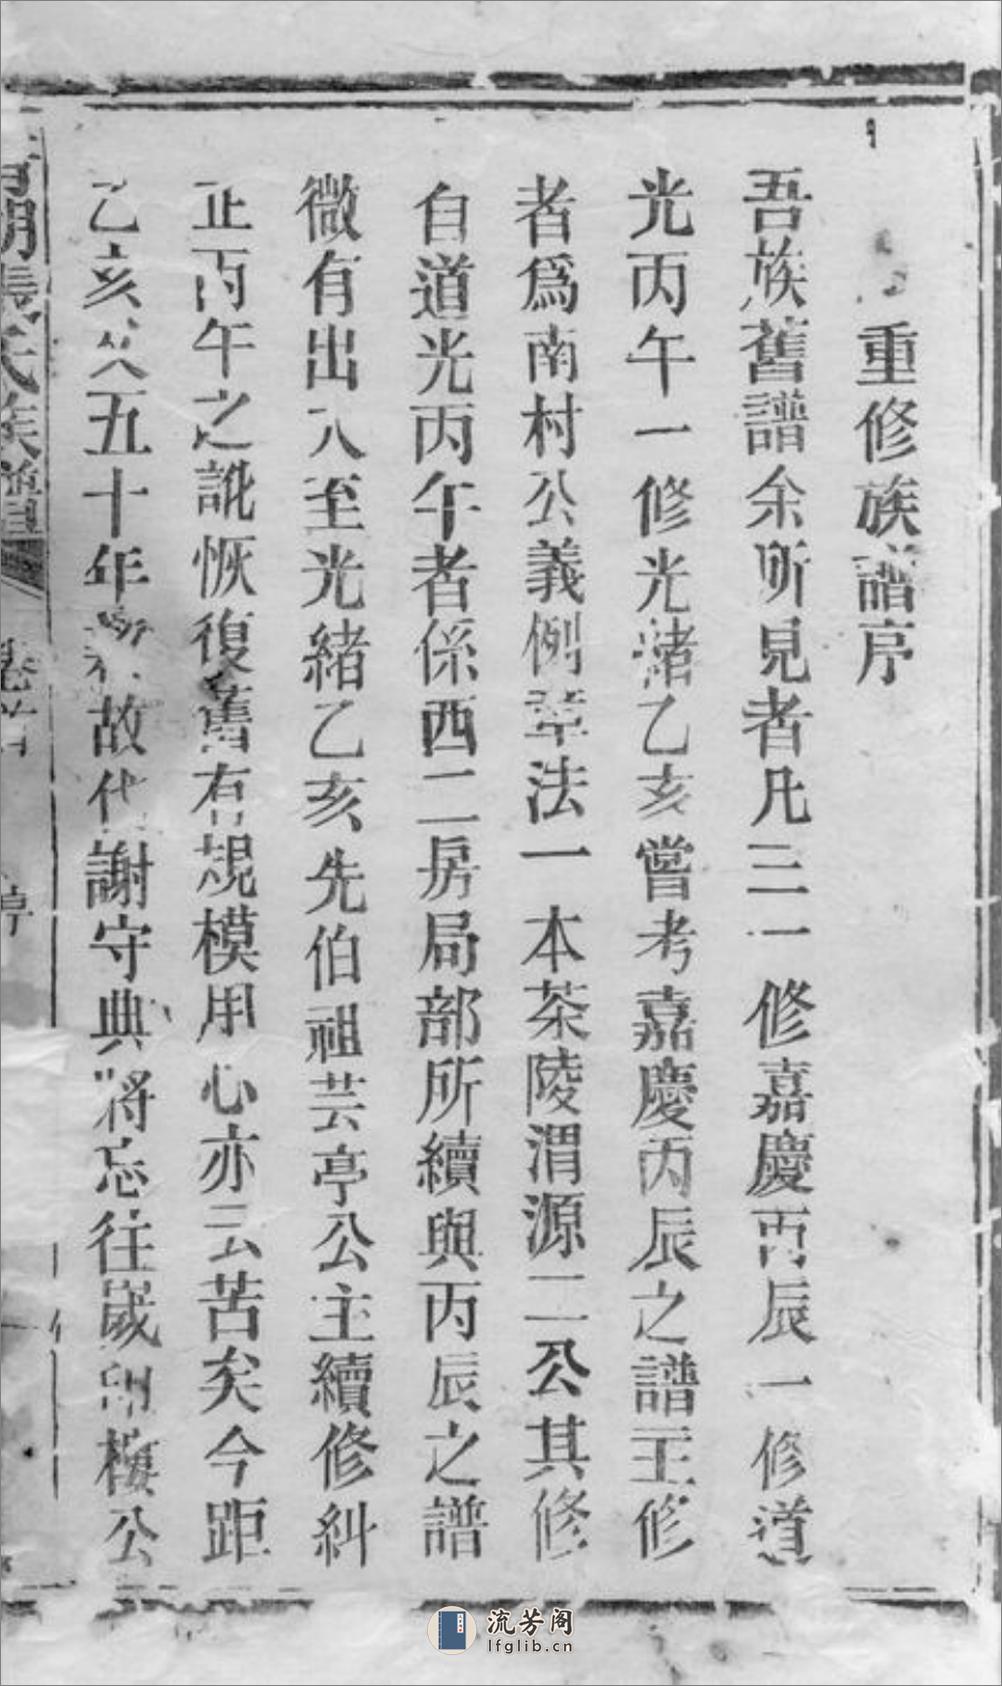 重修族譜序
吾族舊譜余所見者凡三一修嘉慶丙辰一修道
光丙午一修光緒乙亥嘗考嘉慶丙辰之譜主修
者爲南村公義例章法一本茶陵渭源二公其修
自道光丙午者係西二房局部所續與丙辰之譜
微有出入至光緒乙亥先伯祖芸亭公主續修糾
正丙午之訛恢復舊有規模用心亦云苦矣今距
乙亥又五十年故代謝守典將忘往歲卬樓公
張氏族譜
卷首
流芳阁
lfglib.cn